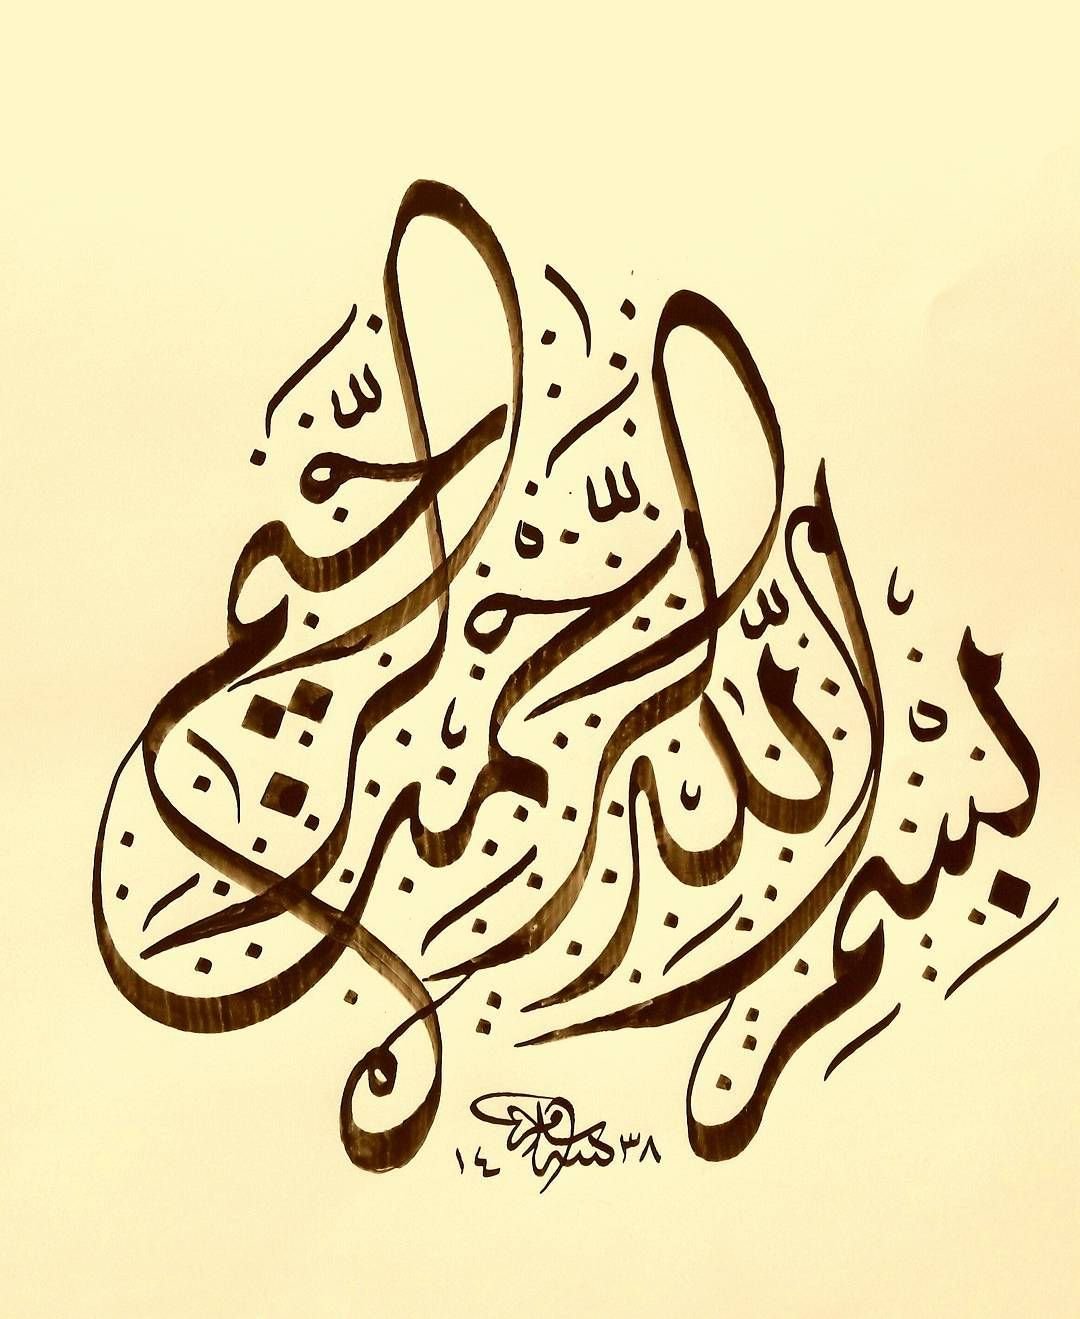 بِسْمِ اللَّهِ الرَّحْمٰنِ الرَّحِيمِ
١٤٣٨